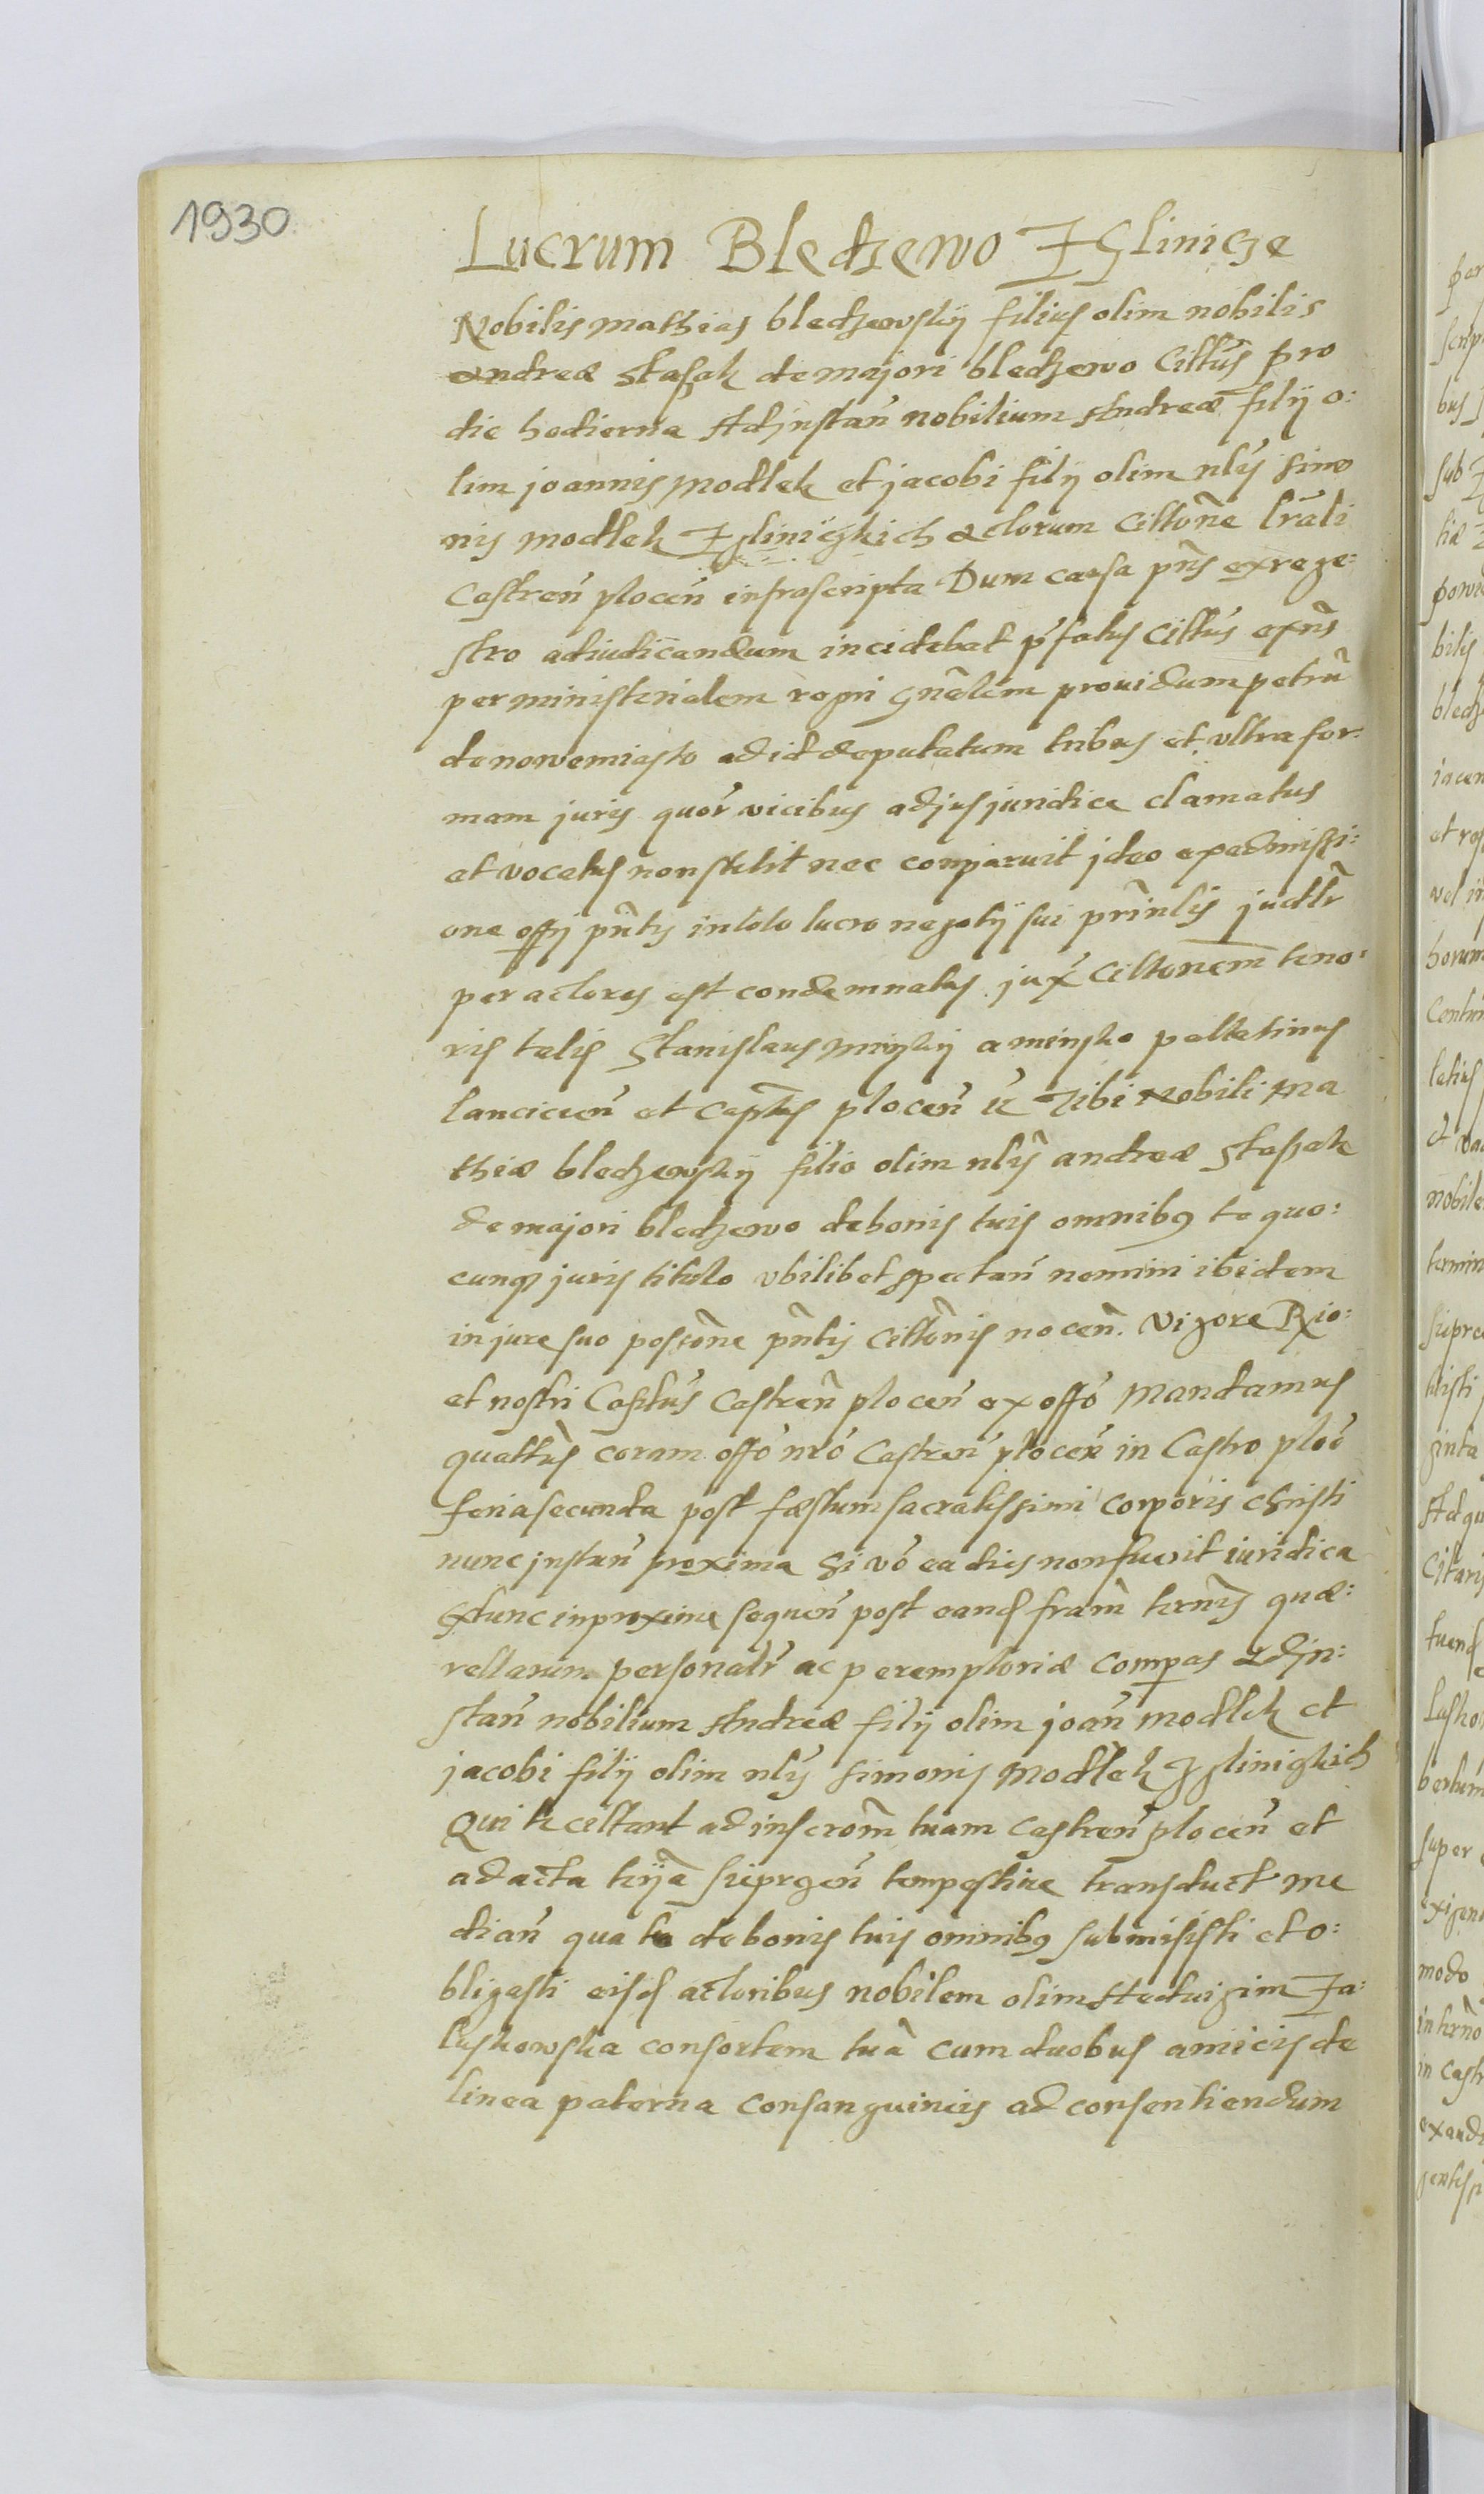 1930
Lucrum Bledzewo Zglinicze
Nobilis mathias bledzewskij filius olim nobilis
andreæ Staßek de majori bledzewo Cittũs pro
die hodierna Ad jnstan̄ nobilium Andreæ filij o:
lim joannis modlek et jacobi filij olim nl̃is simo
nis modlek Zgliniczkich actorum Cittoñe lrãli
Castren̄ plocen̄ infrascripta Dum causa pñs ex rege:
stro adiudicandum incidebat pfatus Cittũs exñs
per ministerialem regni gñalem prouidum petrũ
de nowemiasto ad id deputatum tribus et vltra for:
mam juris quor̃ vicibus ad jus juridice clamatus
et vocatus non stetit nec comparuit jdeo ex admissi:
one offij pñtis in toto lucro negotij sui prĩnlis judtr̃
per actores est condemnatus jux̃ Cittonem teno:
ris talis Stanislaus minskij a minsko pallatinus
lancicien̄ et Capt̃us plocen̄ &c Tibi Nobili Ma
thiæ bledzewskij filio olim nl̃is andreæ Staßek
de majori bledzewo de bonis tuis omnibus te quo:
cunq juris titulo vbilibet spectan̄ nemini ibidem
in jure suo possoñe pñtis Cittoñis nocen̄. Vigore Rio:
et nostri Capt̃us Castren̄ plocen̄ ex offo mandamus
quattus coram offo nrõ Castren̄ plocen̄ in Castro ploc̃
feria secunda post fæstum sacratissimi Corporis Christi
nunc jnstan̄ proxima Si vo ea dies non fuerit iuridica
Extunc in proxime sequen̄ post eand fram̃ termis quæ:
rellarum personalr̃ ac peremptoriæ compas Ad jn:
stan̄ nobilium Andreæ filij olim joan̄ modlek et
jacobi filij olim nl̃is simonis modlek Zgliniczkich
Qui te cittant ad inscrom̃ tuam Castren̄ plocen̄ et
ad acta trija sieprgen̄ tempestiue transduct me
dian̄ qua tu de bonis tuis omnibus submisisti et o:
bligasti eisd actoribus nobilem olim Heduigim Za:
luskowska consortem tuã cum duobus amicis de
linea paterna consanguineis ad consentiendum